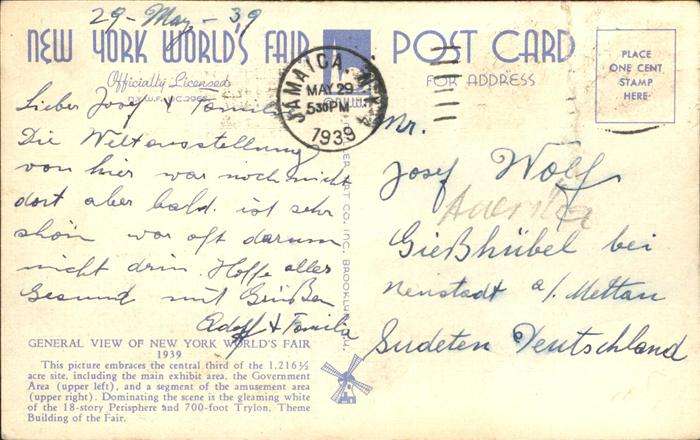 29 - May - 39
NEW YORK WORLD'S FAIR POST CARD
Officially Licensed
FOR ADDRESS
PLACE
ONE CENT
STAMP
HERE
JAMAICA, N.Y.
MAY 29
5 30 PM
1939
Lieber Josef & Familie
Die Weltausstellung
von hier war noch nicht
dort aber bald. ist sehr
schön war oft darum
nicht drin. Hoffe alles
Gesund mit Grüßen
Adolf & Familie
Mr.
Josef Wolf
Gießhübel bei
Neustadt a/. Mettau
Sudeten Deutschland
CO. INC. BROOKLYN
GENERAL VIEW OF NEW YORK WORLD'S FAIR
1939
This picture embraces the central third of the 1,216½
acre site, including the main exhibit area, the Government
Area (upper left), and a segment of the amusement area
(upper right). Dominating the scene is the gleaming white
of the 18-story Perisphere and 700-foot Trylon, Theme
Building of the Fair.